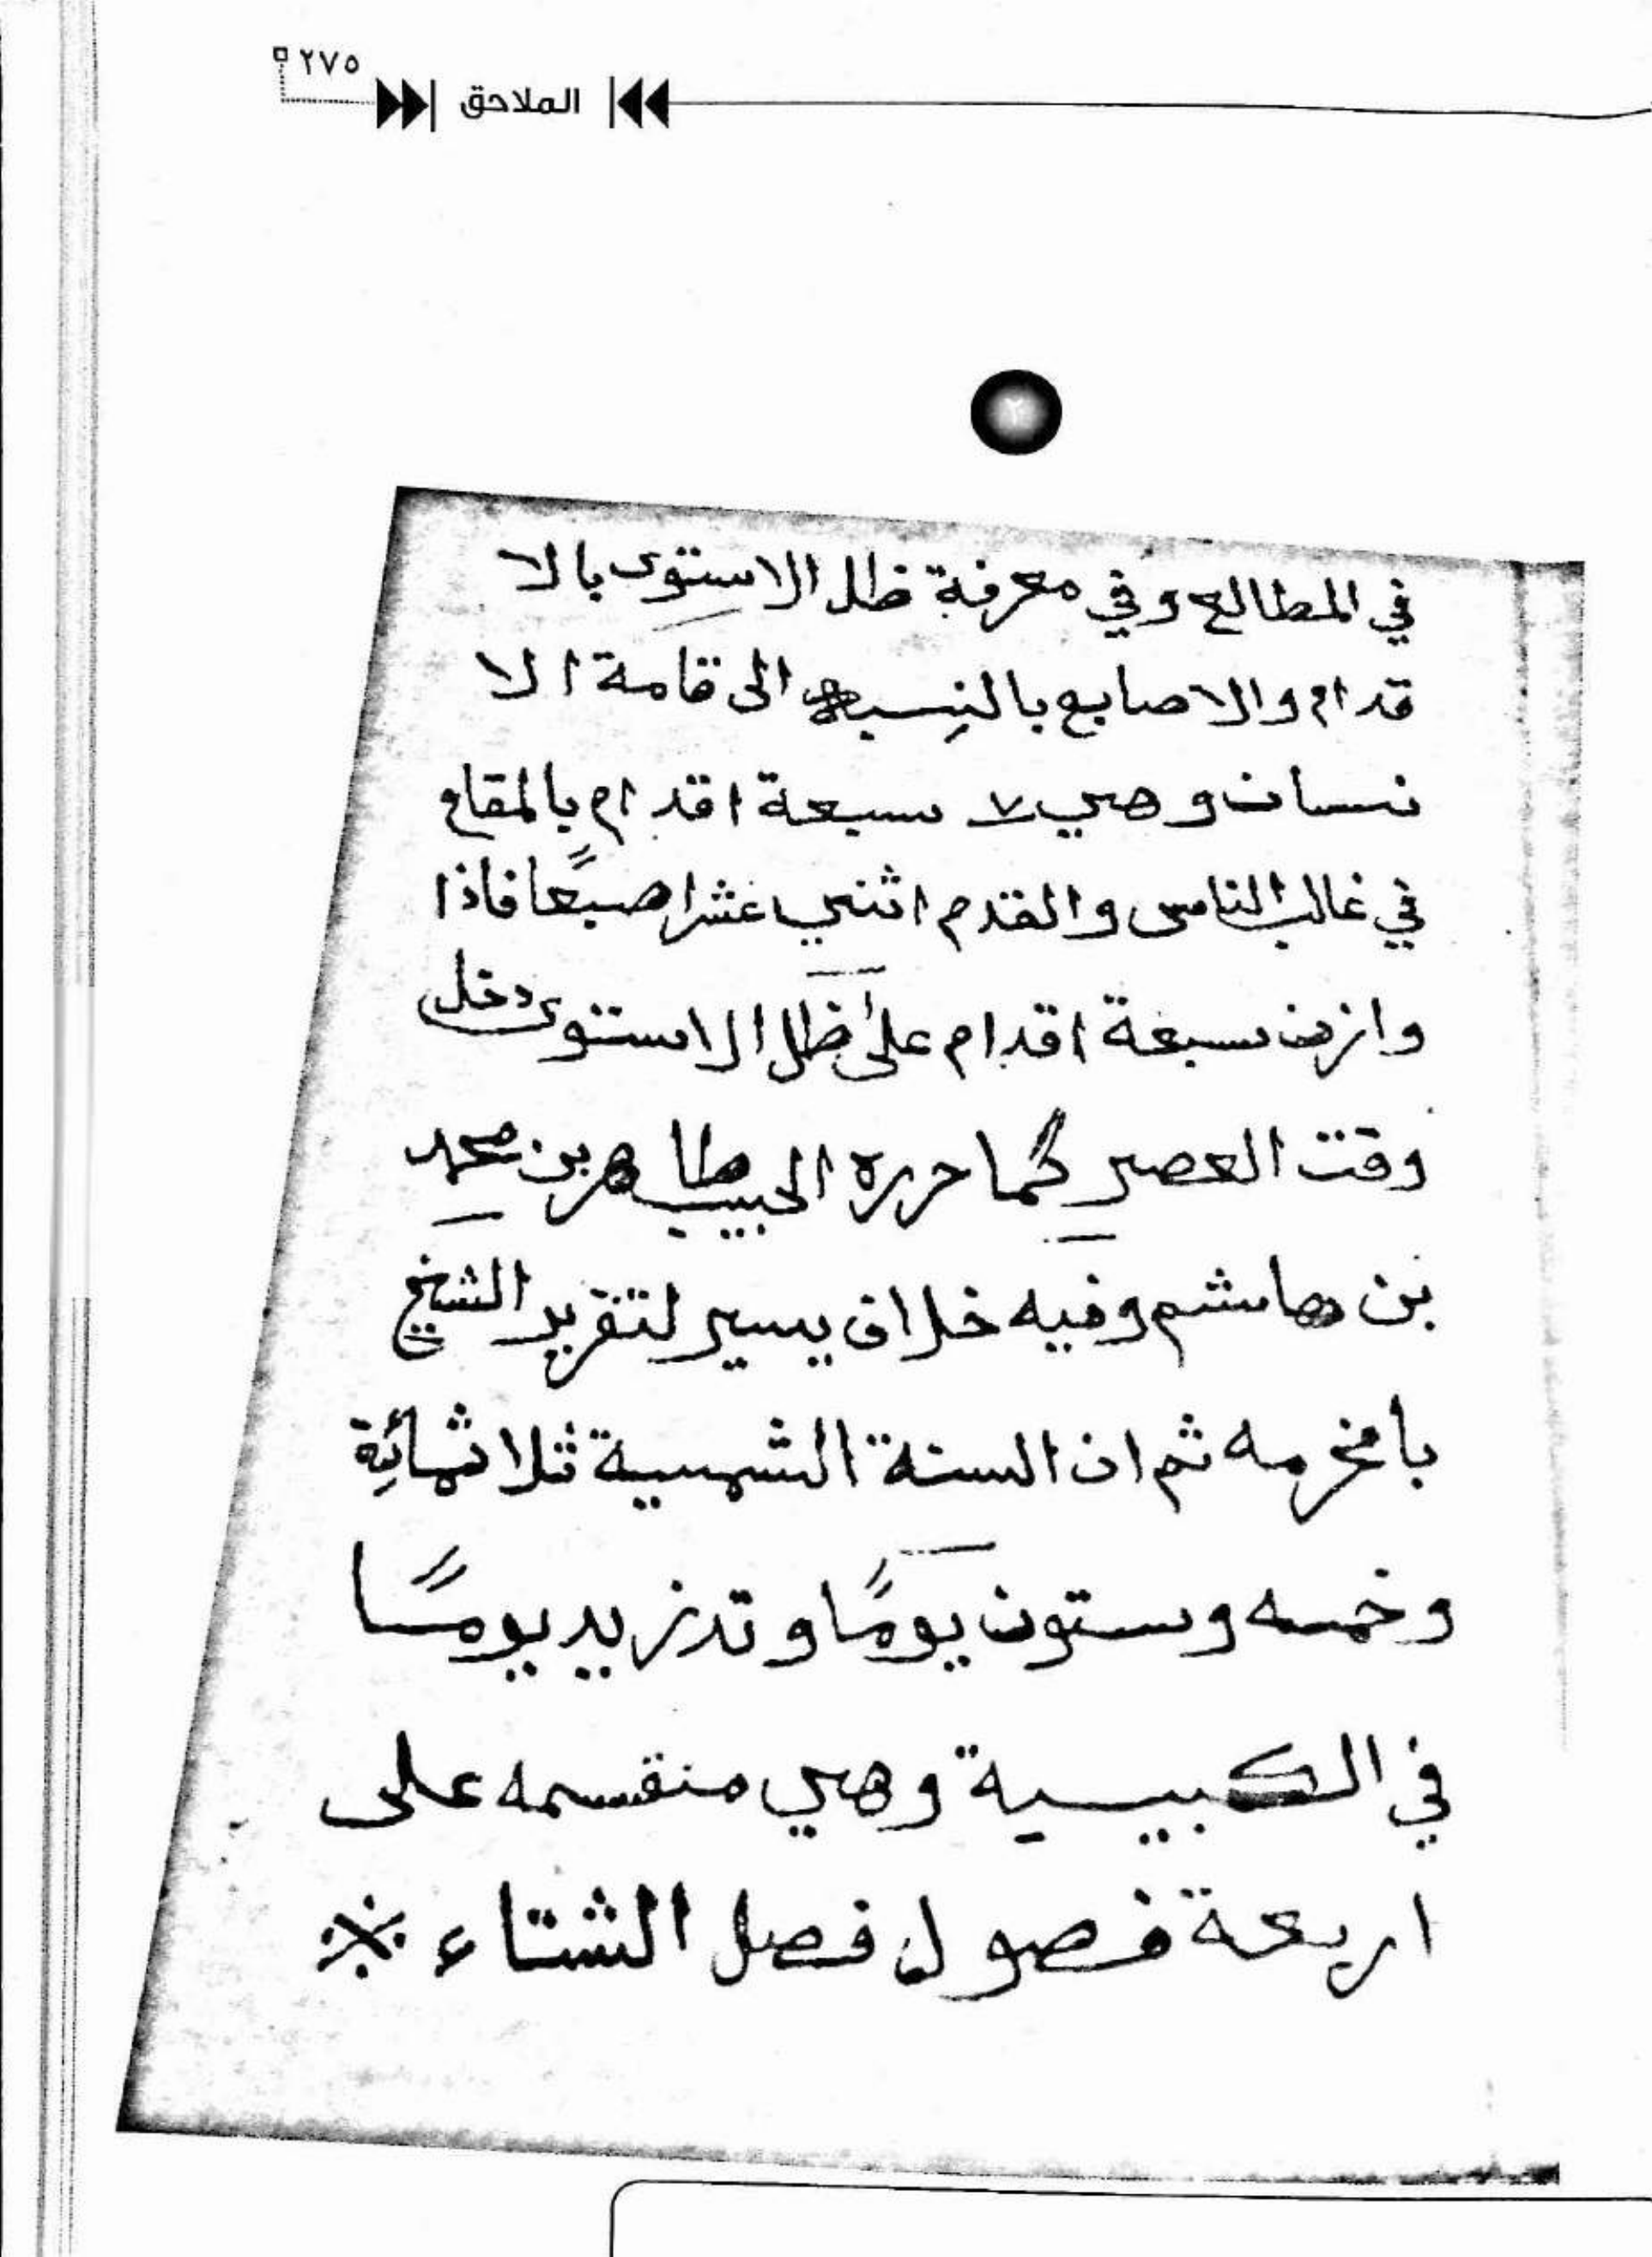 ٢٧٥
الملاحق
٢
في المطالع وفي معرفة ظل الاستوى بالا
قدام والاصابع بالنسبه الى قامة الا
نسان وهي ٧ سبعة اقدام بالمقام
في غالب الناس والقدم اثني عشر اصبعًا فاذا
وازن سبعة اقدام على ظل الاستوى دخل
وقت العصر كما حرره الحبيب طاهر بن محمد
بن هاشم وفيه خلاف يسير لتقرير الشيخ
بامخرمه ثم ان السنة الشمسية ثلاثمائِة
وخمسه وستون يومًا وتدزيد يومًا
في الكبيسية وهي منقسمه على
اربعة فصول فصل الشتاء ※